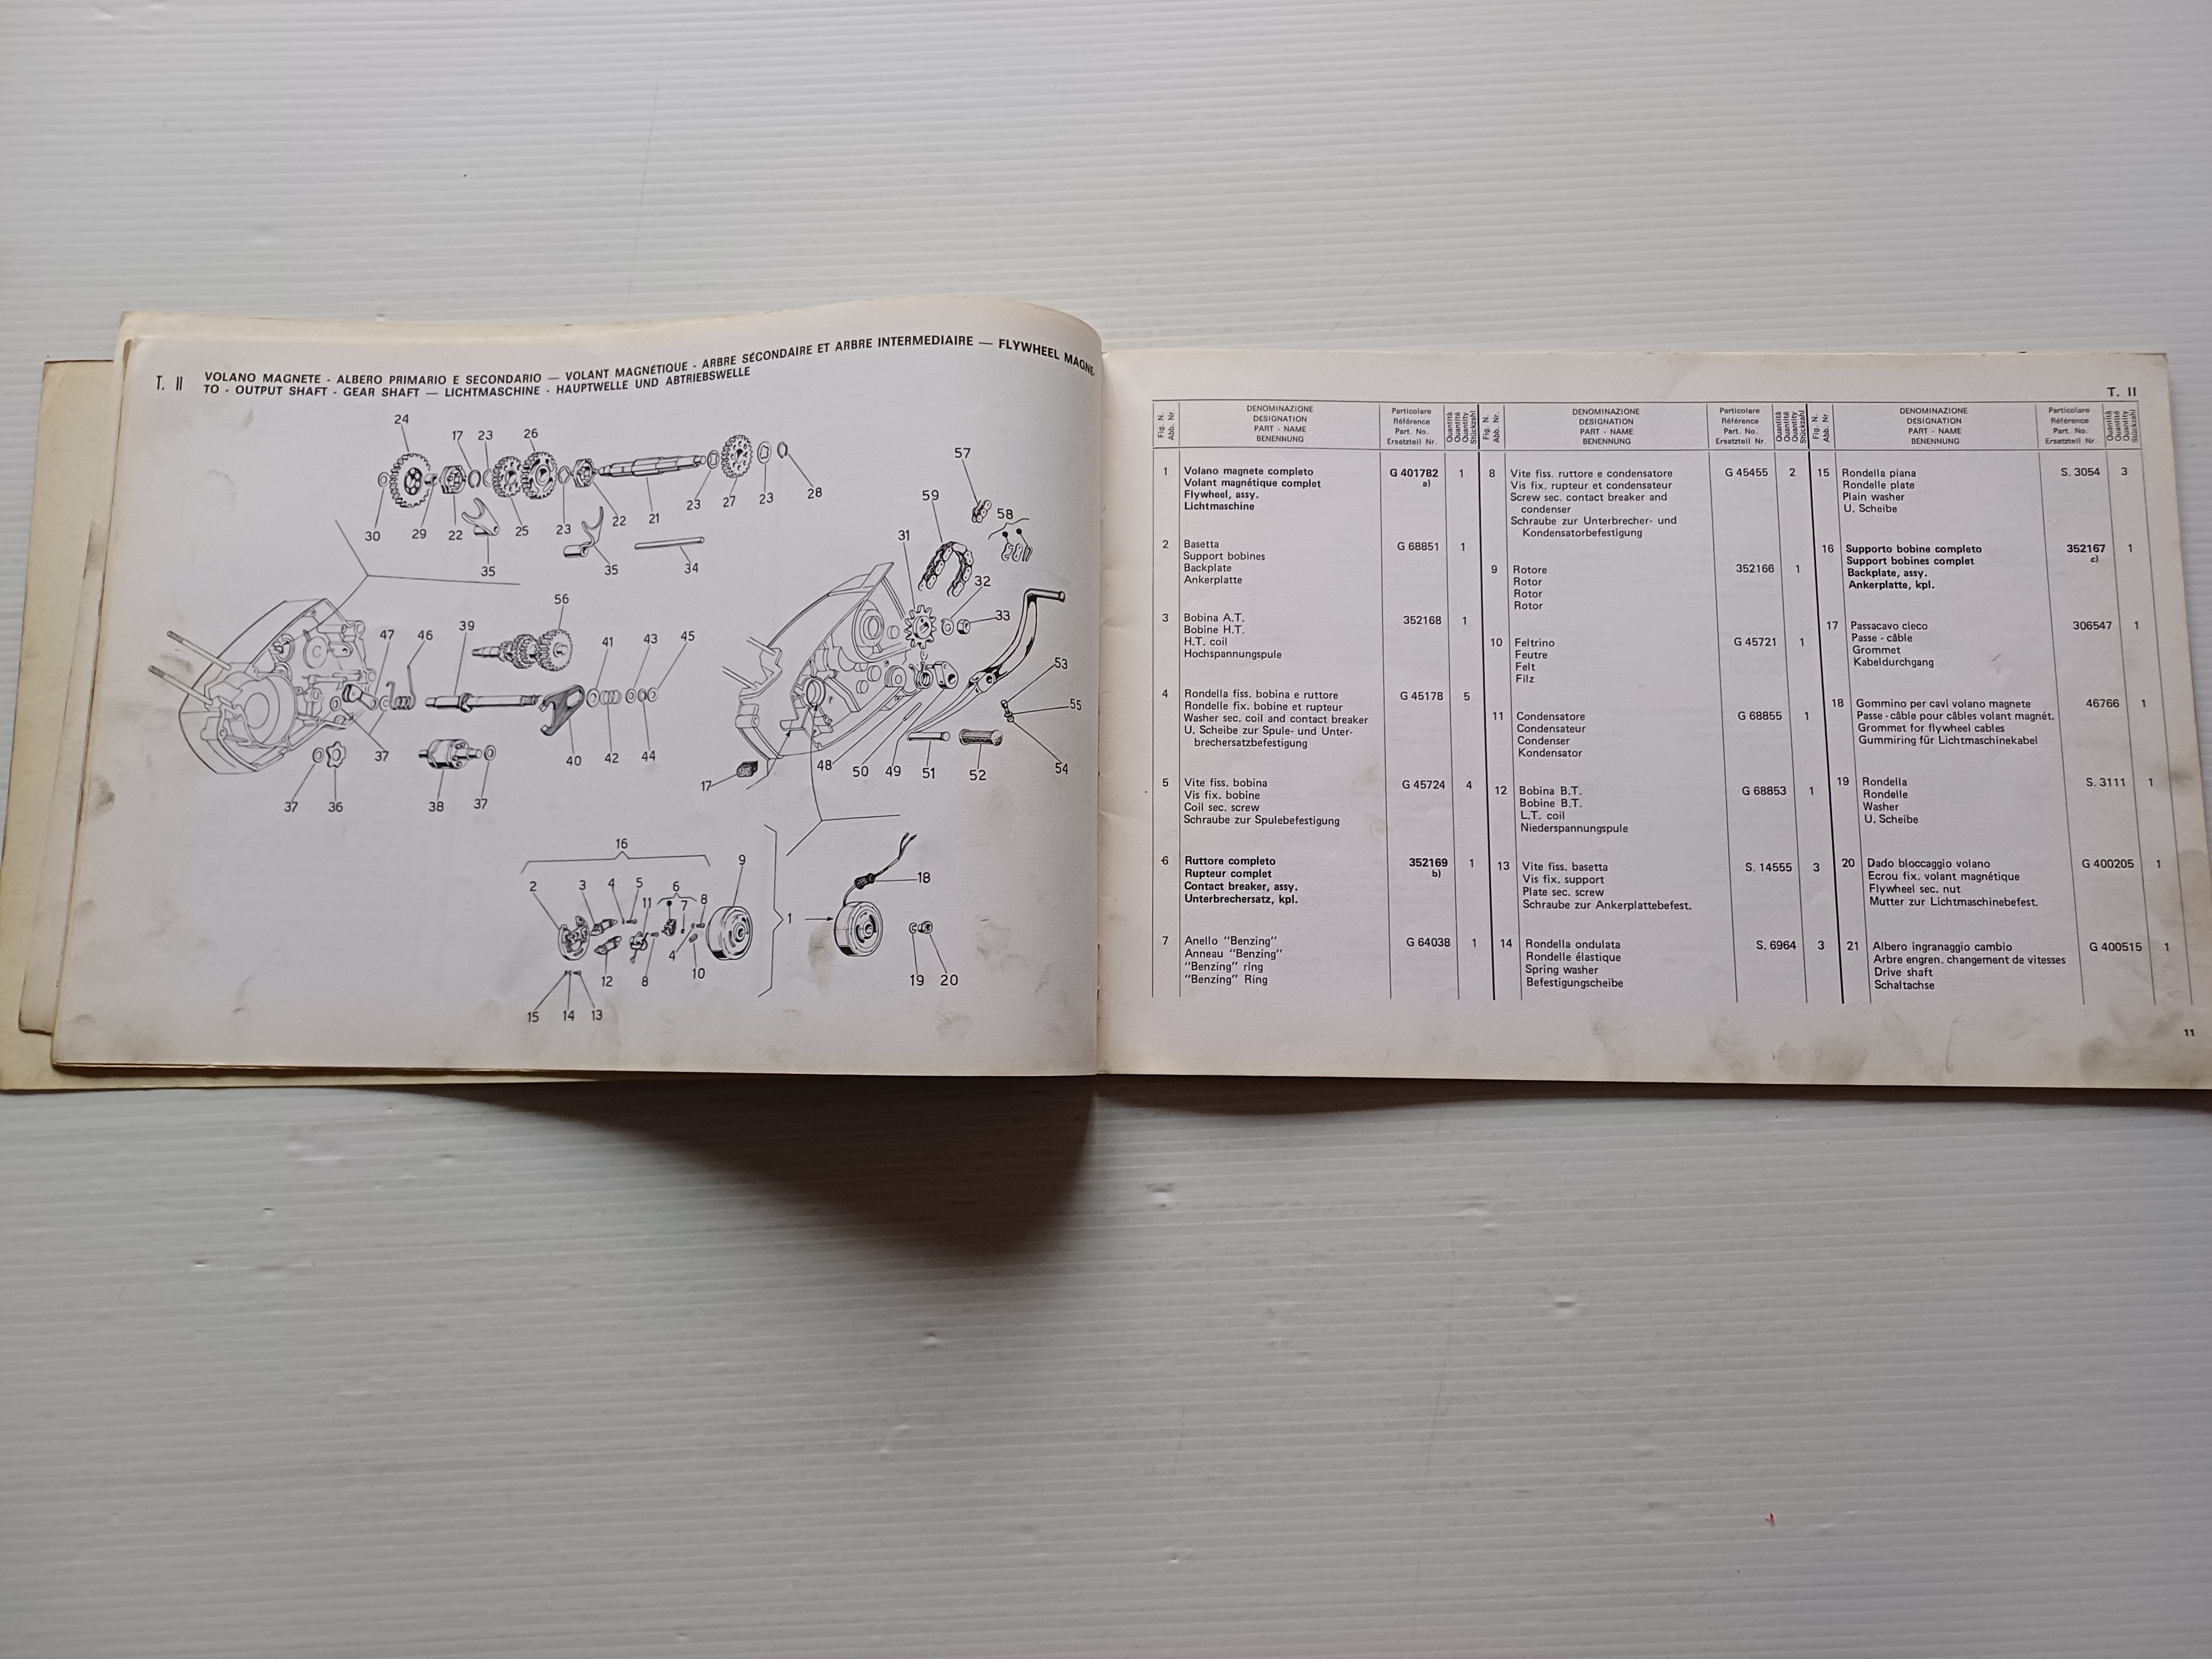 T. II
VOLANO MAGNETE - ALBERO PRIMARIO E SECONDARIO — VOLANT MAGNÉTIQUE - ARBRE SÉCONDAIRE ET ARBRE INTERMEDIAIRE — FLYWHEEL MAGNE-
TO - OUTPUT SHAFT - GEAR SHAFT — LICHTMASCHINE - HAUPTWELLE UND ABTRIEBSWELLE
24
17
23
26
30
29
22
35
25
23
35
22
21
34
23
27
23
28
57
59
58
31
32
33
56
47
46
39
41
43
45
37
40
42
44
53
55
54
37
36
38
37
17
48
50
49
51
52
16
2
3
4
5
11
6
7
8
9
1
18
12
8
4
10
19
20
15
14
13
T. II
Fig. N.
Abb. Nr.
DENOMINAZIONE
DESIGNATION
PART - NAME
BENENNUNG
Particolare
Référence
Part. No.
Ersatzteil Nr.
Quantità
Quantité
Quantity
Stückzahl
1
Volano magnete completo
Volant magnétique complet
Flywheel, assy.
Lichtmaschine
G 401782
a)
1
2
Basetta
Support bobines
Backplate
Ankerplatte
G 68851
1
3
Bobina A.T.
Bobine H.T.
H.T. coil
Hochspannungspule
352168
1
4
Rondella fiss. bobina e ruttore
Rondelle fix. bobine et rupteur
Washer sec. coil and contact breaker
U. Scheibe zur Spule- und Unter-
brechersatzbefestigung
G 45178
5
5
Vite fiss. bobina
Vis fix. bobine
Coil sec. screw
Schraube zur Spulebefestigung
G 45724
4
6
Ruttore completo
Rupteur complet
Contact breaker, assy.
Unterbrechersatz, kpl.
352169
b)
1
7
Anello "Benzing"
Anneau "Benzing"
"Benzing" ring
"Benzing" Ring
G 64038
1
Fig. N.
Abb. Nr.
DENOMINAZIONE
DESIGNATION
PART - NAME
BENENNUNG
Particolare
Référence
Part. No.
Ersatzteil Nr.
Quantità
Quantité
Quantity
Stückzahl
8
Vite fiss. ruttore e condensatore
Vis fix. rupteur et condensateur
Screw sec. contact breaker and
condenser
Schraube zur Unterbrecher- und
Kondensatorbefestigung
G 45455
2
9
Rotore
Rotor
Rotor
Rotor
352166
1
10
Feltrino
Feutre
Felt
Filz
G 45721
1
11
Condensatore
Condensateur
Condenser
Kondensator
G 68855
1
12
Bobina B.T.
Bobine B.T.
L.T. coil
Niederspannungspule
G 68853
1
13
Vite fiss. basetta
Vis fix. support
Plate sec. screw
Schraube zur Ankerplattebefest.
S. 14555
3
14
Rondella ondulata
Rondelle élastique
Spring washer
Befestigungscheibe
S. 6964
3
Fig. N.
Abb. Nr.
DENOMINAZIONE
DESIGNATION
PART - NAME
BENENNUNG
Particolare
Référence
Part. No.
Ersatzteil Nr.
Quantità
Quantité
Quantity
Stückzahl
15
Rondella piana
Rondelle plate
Plain washer
U. Scheibe
S. 3054
3
16
Supporto bobine completo
Support bobines complet
Backplate, assy.
Ankerplatte, kpl.
352167
c)
1
17
Passacavo cieco
Passe - câble
Grommet
Kabeldurchgang
306547
1
18
Gommino per cavi volano magnete
Passe - câble pour câbles volant magnét.
Grommet for flywheel cables
Gummiring für Lichtmaschinekabel
46766
1
19
Rondella
Rondelle
Washer
U. Scheibe
S. 3111
1
20
Dado bloccaggio volano
Ecrou fix. volant magnétique
Flywheel sec. nut
Mutter zur Lichtmaschinebefest.
G 400205
1
21
Albero ingranaggio cambio
Arbre engren. changement de vitesses
Drive shaft
Schaltachse
G 400515
1
11